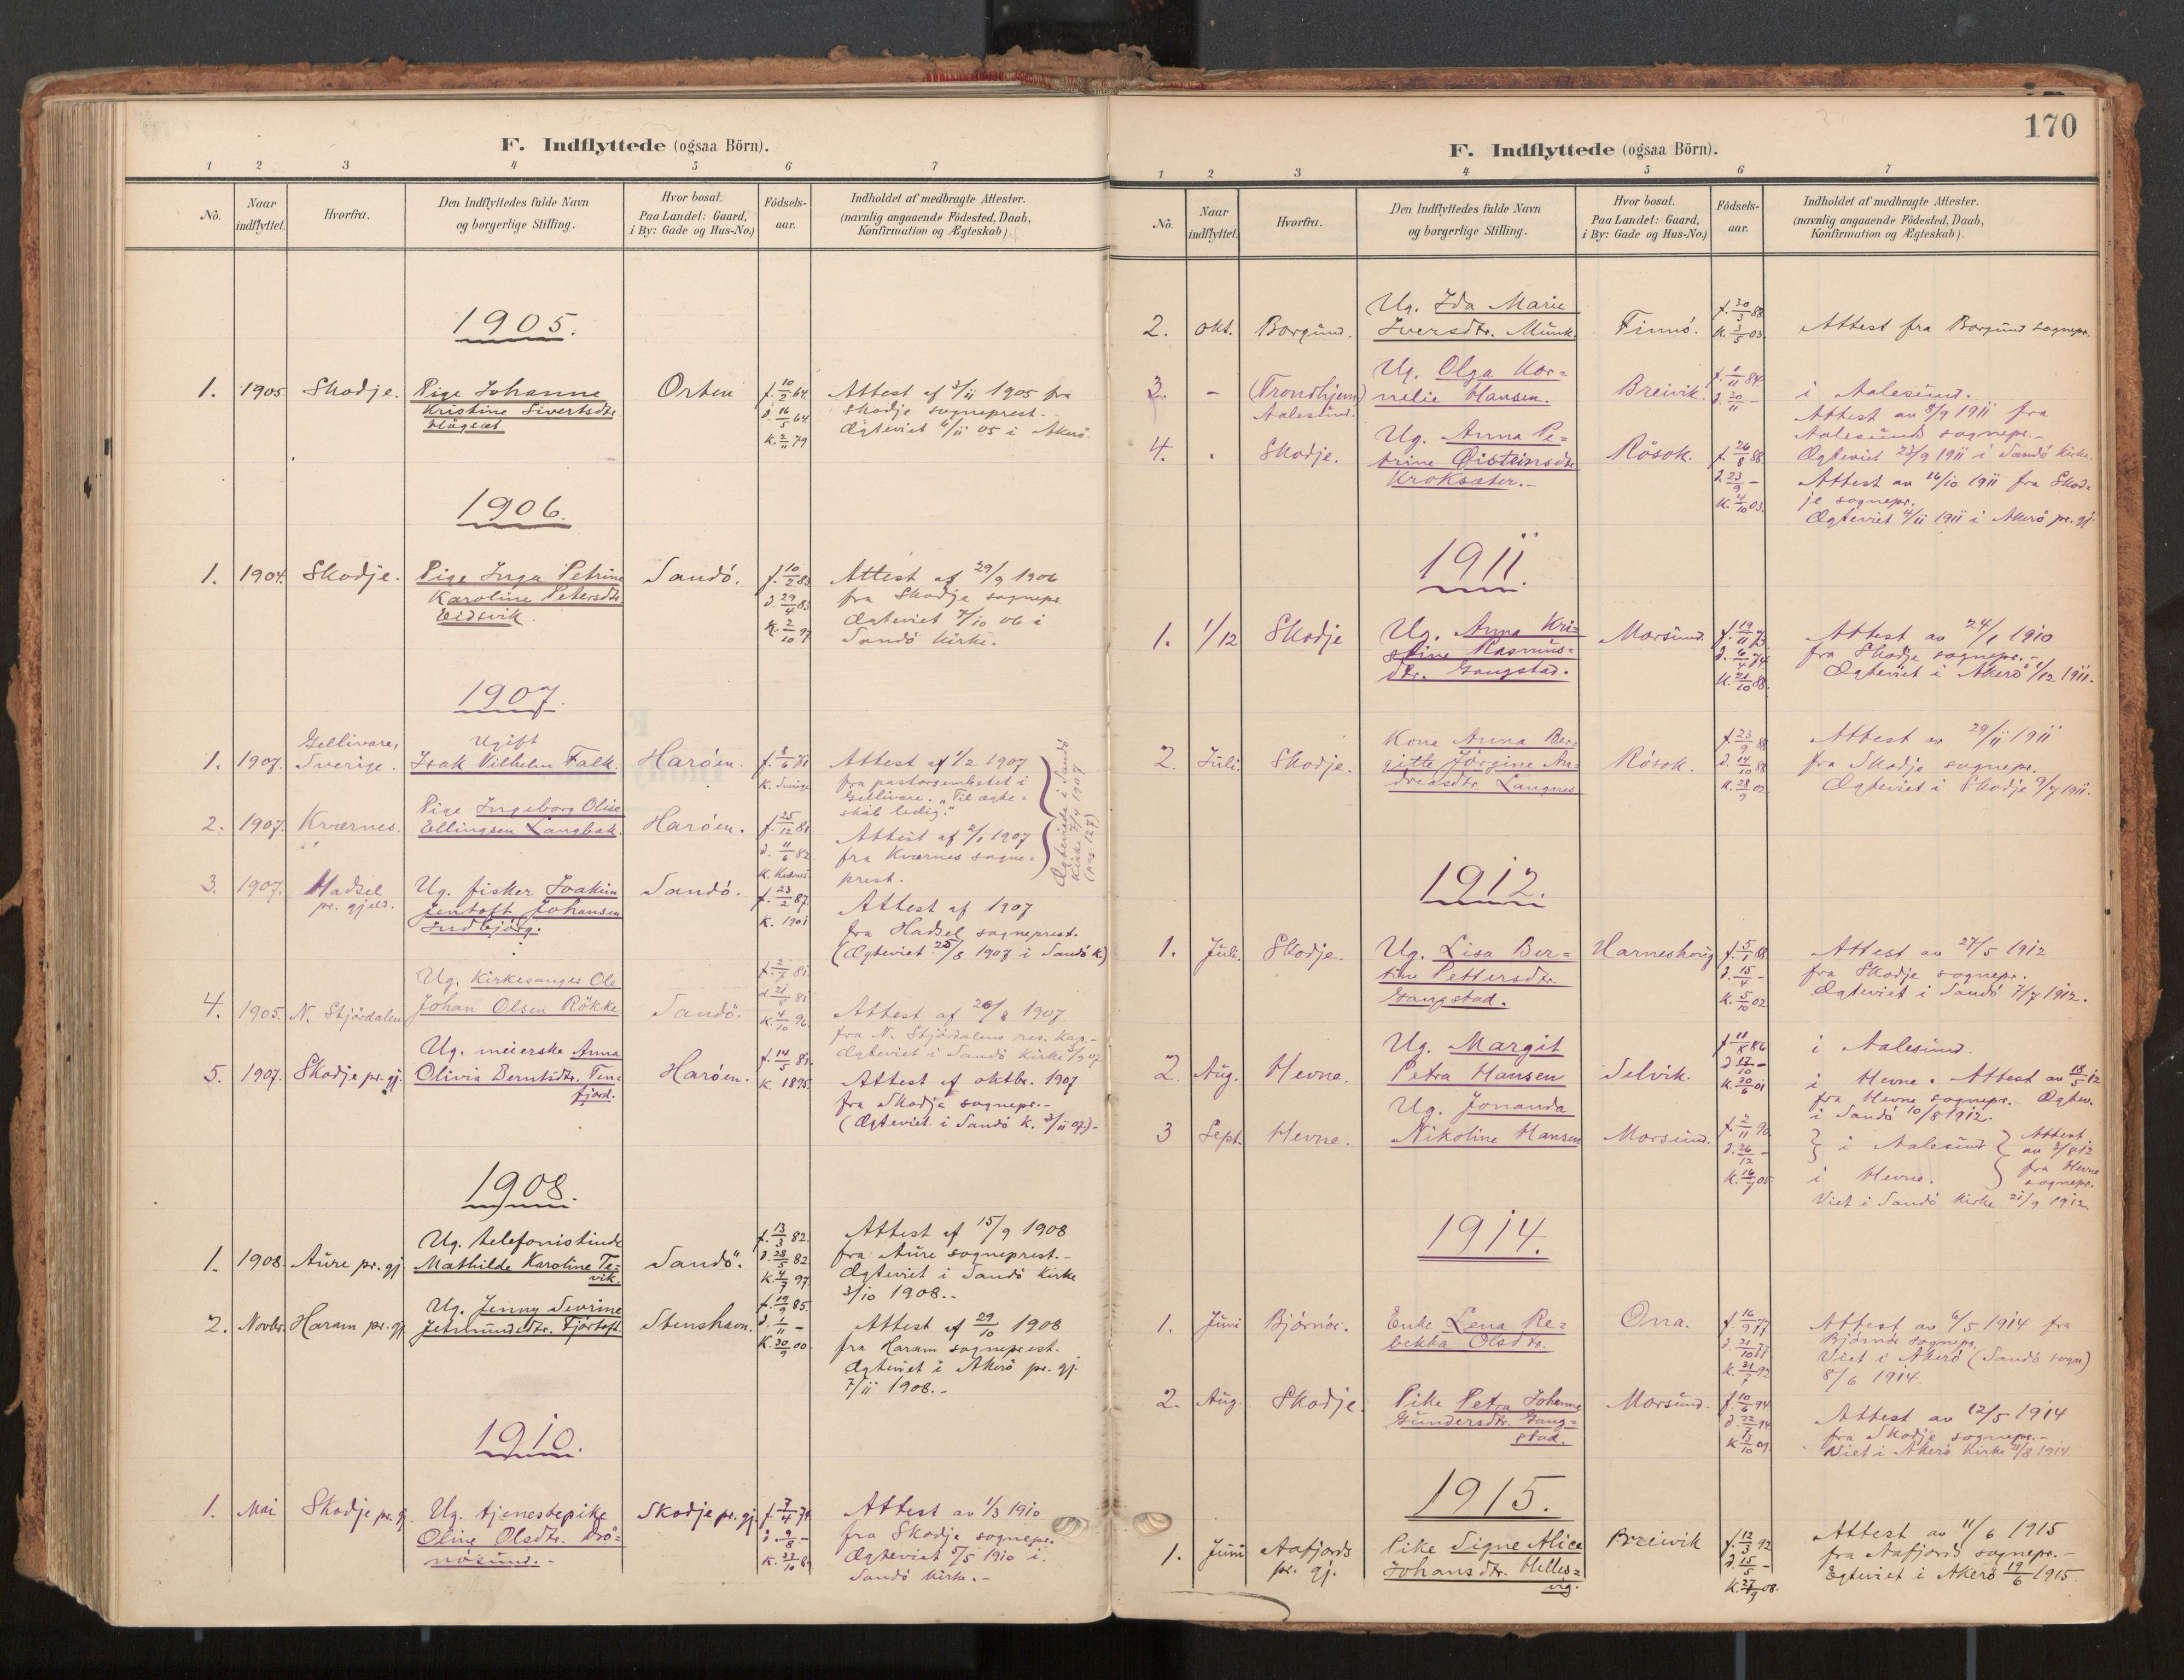 F. Indflyttede (ogsaa Börn).
1 2 3 4 5 6 7
No. Naar indflyttet. Hvorfra. Den Indflyttedes fulde Navn og borgerlige Stilling. Hvor bosat. Paa Landet: Gaard, i By: Gade og Hus-No.) Födsels-aar. Indholdet af medbragte Attester. (navnlig angaaende Födested, Daab, Konfirmation og Ægteskab).
1905.
1. 1905. Skodje. Pige Johanne Orten f. 10/2 64. Attest af 3/11 1905 fra
Kristine Sivertsdtr. d. 16/5 64 Skodje sogneprest.-
Högset k. 2/11 79 Ægteviet 4/11 05 i Akerö.
1906.
1. 1904. Skodje. Pige Inga Petrine Sandö. f. 10/2 83 Attest af 29/9 1906
Karoline Petersdtr. d. 29/4 83 fra Skodje sognepr.
Eidsvik. K. 2/10 97 Ægteviet 7/10 06 i
Sandö Kirke.
1907.
Gellivare, Ugift
1. 1907. Sverige. Isak Vilhelm Falk. Haröen. f. 8/6 81 Attest af 1/2 1907
k. Sverige fra pastorsembetet i
Gellivare. "Til ægte-
skab ledig."
Pige Ingeborg Olise
2. 1907. Kværnes. Ellingsen Langbak. Haröen. f. 25/12 81 Attest af 2/1 1907
d. 11/6 82. fra Kværnes sogne-
prest.
Ægteviede i Sandö
Kirke 7/4 1907
(pag 127)
3. 1907. Hadsel Ug. fisker Joakim Sandö. f. 23/2 87. Attest af 1907
pr. gjeld. Jentoft Johansen k. 1901 fra Hadsel sogneprest.
Indbjörg. (Ægteviet 25/8 1907 i Sandö k.)
Ug. Kirkesanger Ole
4. 1905. N. Stjördalen Johan Olsen Rökke Sandö. d. 21/8 81 Attest af 20/8 1907
K. 4/10 96. fra N. Stjördalens res. Kap.-
Ægteviet i Sandö Kirke 3/9 07
Ug. meierske Anna f. 14/5 81.
5. 1907. Skodje pr. gj. Olivia Berntsdtr. Ten- Haröen. K 1895 Attest af oktbr. 1907
fjord. fra Skodje sognepr.-
(Ægteviet i Sandö K. 3/11 07)-
1908.
Ug. telefonistinde f. 13/3 82. Attest af 15/9 1908
1. 1908. Aure pr. gj. Mathilde Karoline Te- Sandö. d. 28/5 82 fra Aure sogneprest.-
vik. K. 4/7 97 Ægteviet i Sandö Kirke
3/10 1908.-
Ug. Jenny Sevrine f. 19/9 85.
2. Novbr. Haram pr. gj. Jetmundsdtr. Fjörtoft Stenshavn. d. 1/11 - Attest af 29/10 1908
K. 30/9 00. fra Haram sogneprest.
Ægteviet i Akerö pr. gj.
7/11 1908.-
1910.
1. Mai Skodje pr. gj. Ug. tjenestepike Skodje pr. gj. f. 7/4 74. Attest av 1/3 1910
Oline Olsdtr. Drö- d. 9/8 - fra Skodje sognepr.
nösund.- Ægteviet 5/5 1910 i
Sandö Kirke.-
170
F. Indflyttede (ogsaa Börn).
1 2 3 4 5 6 7
No. Naar indflyttet. Hvorfra. Den Indflyttedes fulde Navn og borgerlige Stilling. Hvor bosat. Paa Landet: Gaard, i By: Gade og Hus-No.) Födsels-aar. Indholdet af medbragte Attester. (navnlig angaaende Födested, Daab, Konfirmation og Ægteskab).
Ug. Ida Marie f. 30/3 88
2. okt. Borgund. Iversdtr. Munk. Finnö. K. 3/5 03. Attest fra Borgund sognepr.
Ug. Olga Kor- f. 1/11 84.
3. - (Trondhjem) nelie Hansen. Breivik. d. 30/11 - i Aalesund.
Aalesund. Attest av 8/9 1911 fra
Aalesunds sognepr.-
Ægteviet 23/9 1911 i Sandö Kirke.
Ug. Anna Pe-
4. . Skodje. trine Øisteinsdtr. Rösok. f. 26/8 88.
Kroksæter.- d. 23/9 - Attest av 16/10 1911 fra Skod-
K. 4/10 03. je sognepr.
Ægteviet 4/11 1911 i Akerö pr. gj.
1911.
1. 1/12 Skodje Ug. Anna Kri- Morsund. f. 19/11 73 Attest av 24/1 1910
stine Rasmus- d. 6/4 74. fra Skodje sognepr.-
dtr. Gangstad. K. 21/10 88. Ægteviet i Akerö 1/12 1911.
Kone Anna Ber- f. 23/9 88 Attest av 29/11 1911
2. Juli. Skodje. gitte Jörgine An- Rösok. d. 14/10 88 fra Skodje sognepr.
dreasdtr. Langnes K. 28/9 02 Ægteviet i Skodje 9/7 1911.
1912.
1. Juli. Skodje. Ug. Lisa Ber- Harneshoug f. 5/1 88 Attest av 27/5 1912
tine Pettersdtr. d. 15/4 - fra Skodje sognepr.
Gangstad. K. 5/10 02 Ægteviet i Sandö 7/7 1912.
Ug. Margit f. 11/8 86 i Aalesund.
2. Aug. Hevne. Petra Hansen Selvik. d. 17/10 - i Hevne. Attest av 18/5 12
K. 30/6 01 fra Hevne sognepr.- Ægtev.
i Sandö 10/8 1912.
Ug. Jonanda
3 Sept. Hevne. Nikoline Hansen Morsund. f. 2/11 90 i Aalesund Attest
d. 26/12 - av 3/8 12
K. 16/7 05 i Hevne. fra Hevne
sognepr.
Viet i Sandö Kirke 21/9 1912.
1914.
1. Juni Björnör. Enke Lena Re- Ona. f. 16/9 77 Attest av 6/5 1914 fra
bekka Olsdtr. Björnör sognepr.
Viet i Akerö (Sandö sogn)
8/6 1914.
2. Aug. Skodje. Pike Petra Johanne Morsund. f. 10/6 94 Attest av 12/5 1914
Gundersdtr. Gang- d. 22/7 94 fra Skodje sognepr.-
stad. Viet i Akerö Kirke 11/8 1914
1915.
1. Juni Aafjords Pike Signe Alice Breivik f. 12/3 92 Attest av 11/6 1915
pr. gj. Johansdtr. Helles- d. 15/5 - fra Aafjord sognepr.-
vig. K. 27/9 08. Egteviet i Akerö 19/6 1915.